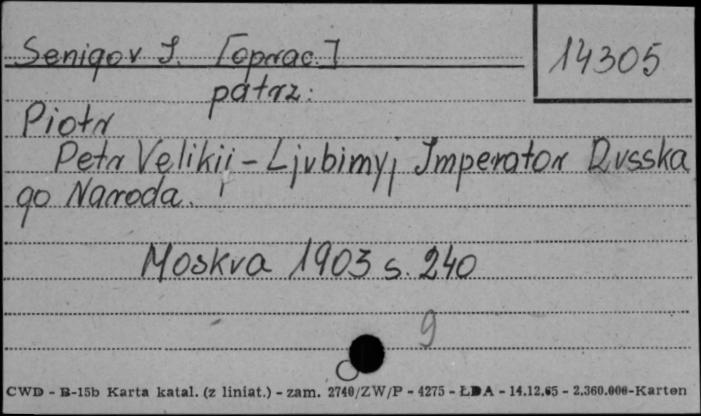 Senigov J. [oprac.]
14305
patrz:
Piotr
Petr Velikij - Ljubimyj Imperator Russka
go Naroda.
Moskva 1903 s. 240
9
CWD - B-15b Karta katal. (z liniat.) - zam. 2740/ZW/P - 4275 - ŁDA - 14.12.65 - 2.360.000-Karton